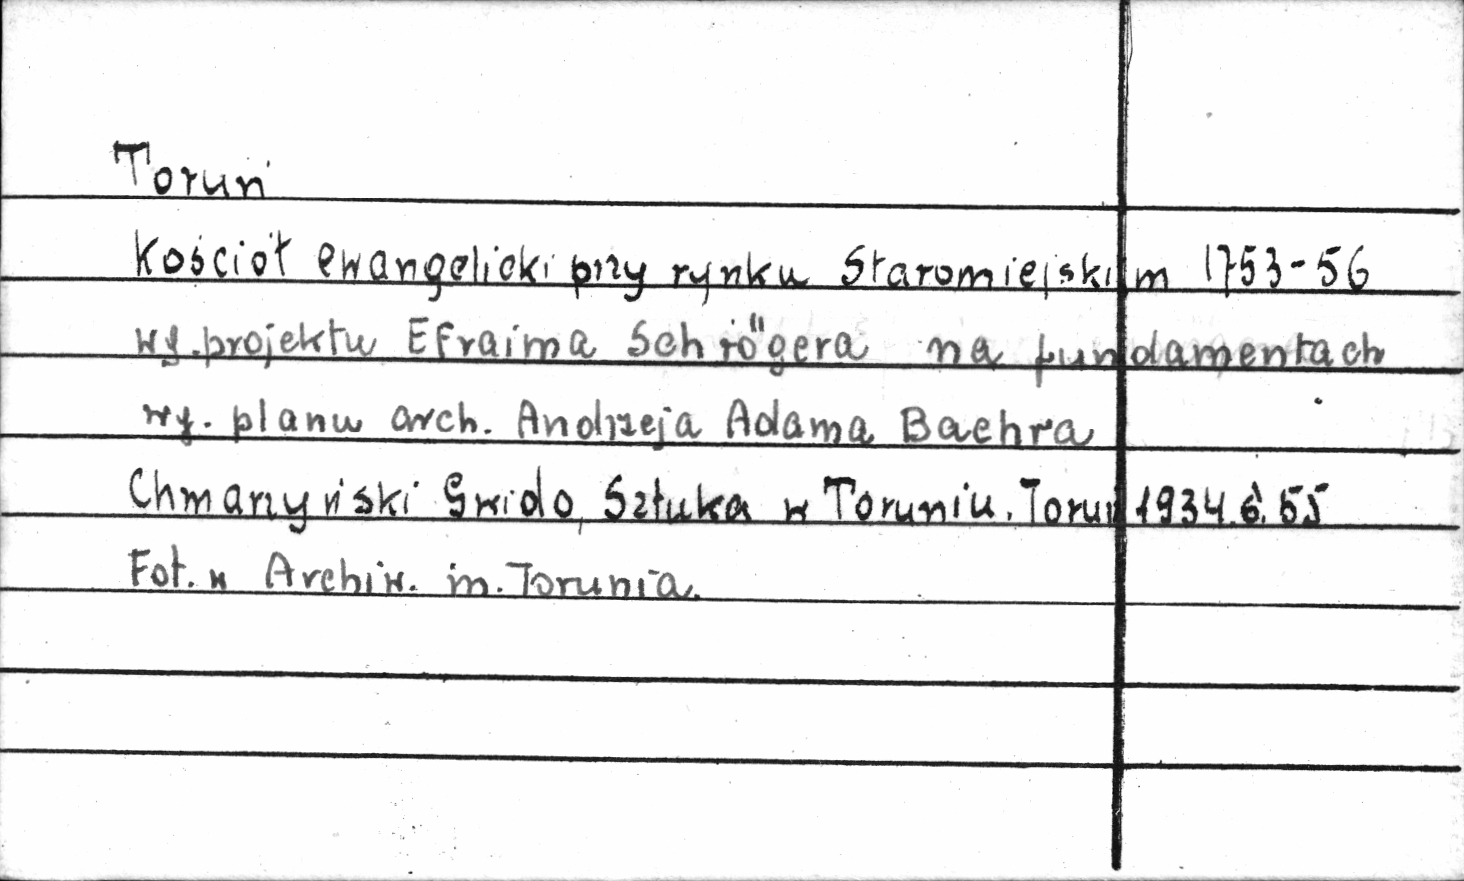 Toruń
Kościół ewangelicki przy rynku Staromiejskim 1753-56
wg. projektu Efraima Schrögera na fundamentach
wg. planu arch. Andrzeja Adama Baehra
Chmarzyński Gwido, Sztuka w Toruniu. Toruń 1934. S. 55
Fot. w Archiw. m. Torunia.